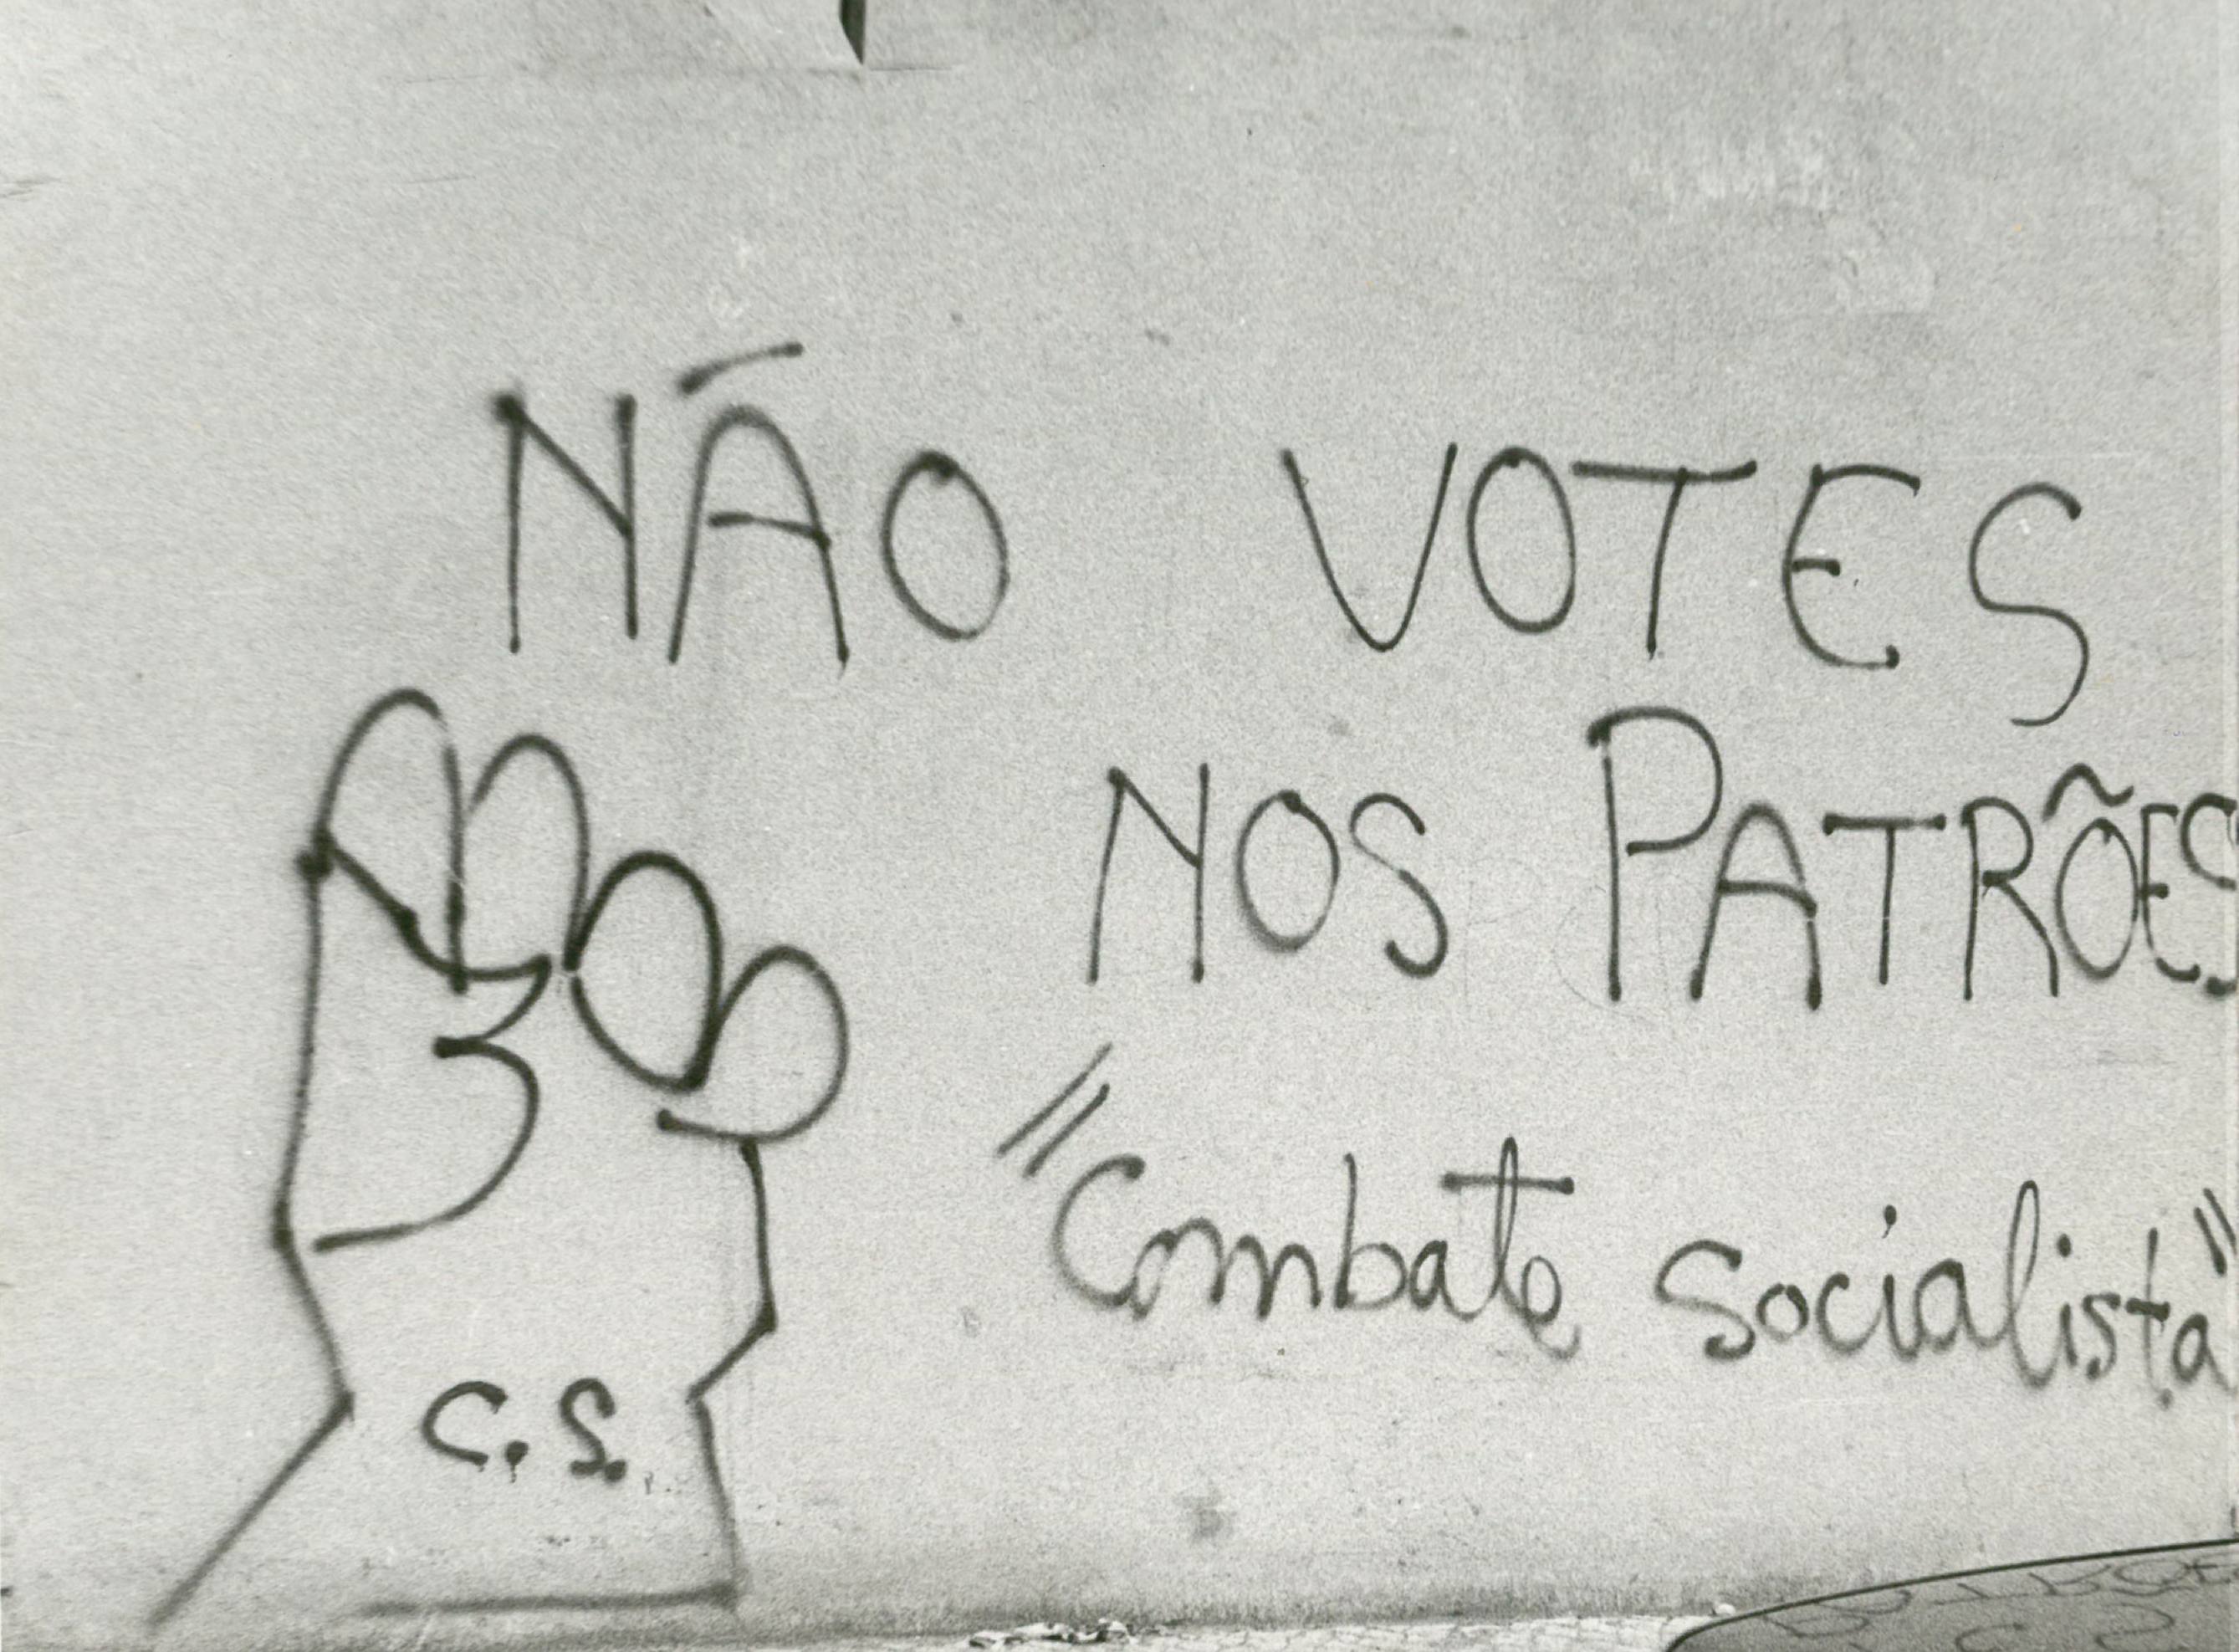 NÃO VOTES
NOS PATRÕES
"Combate Socialista"
C.S.